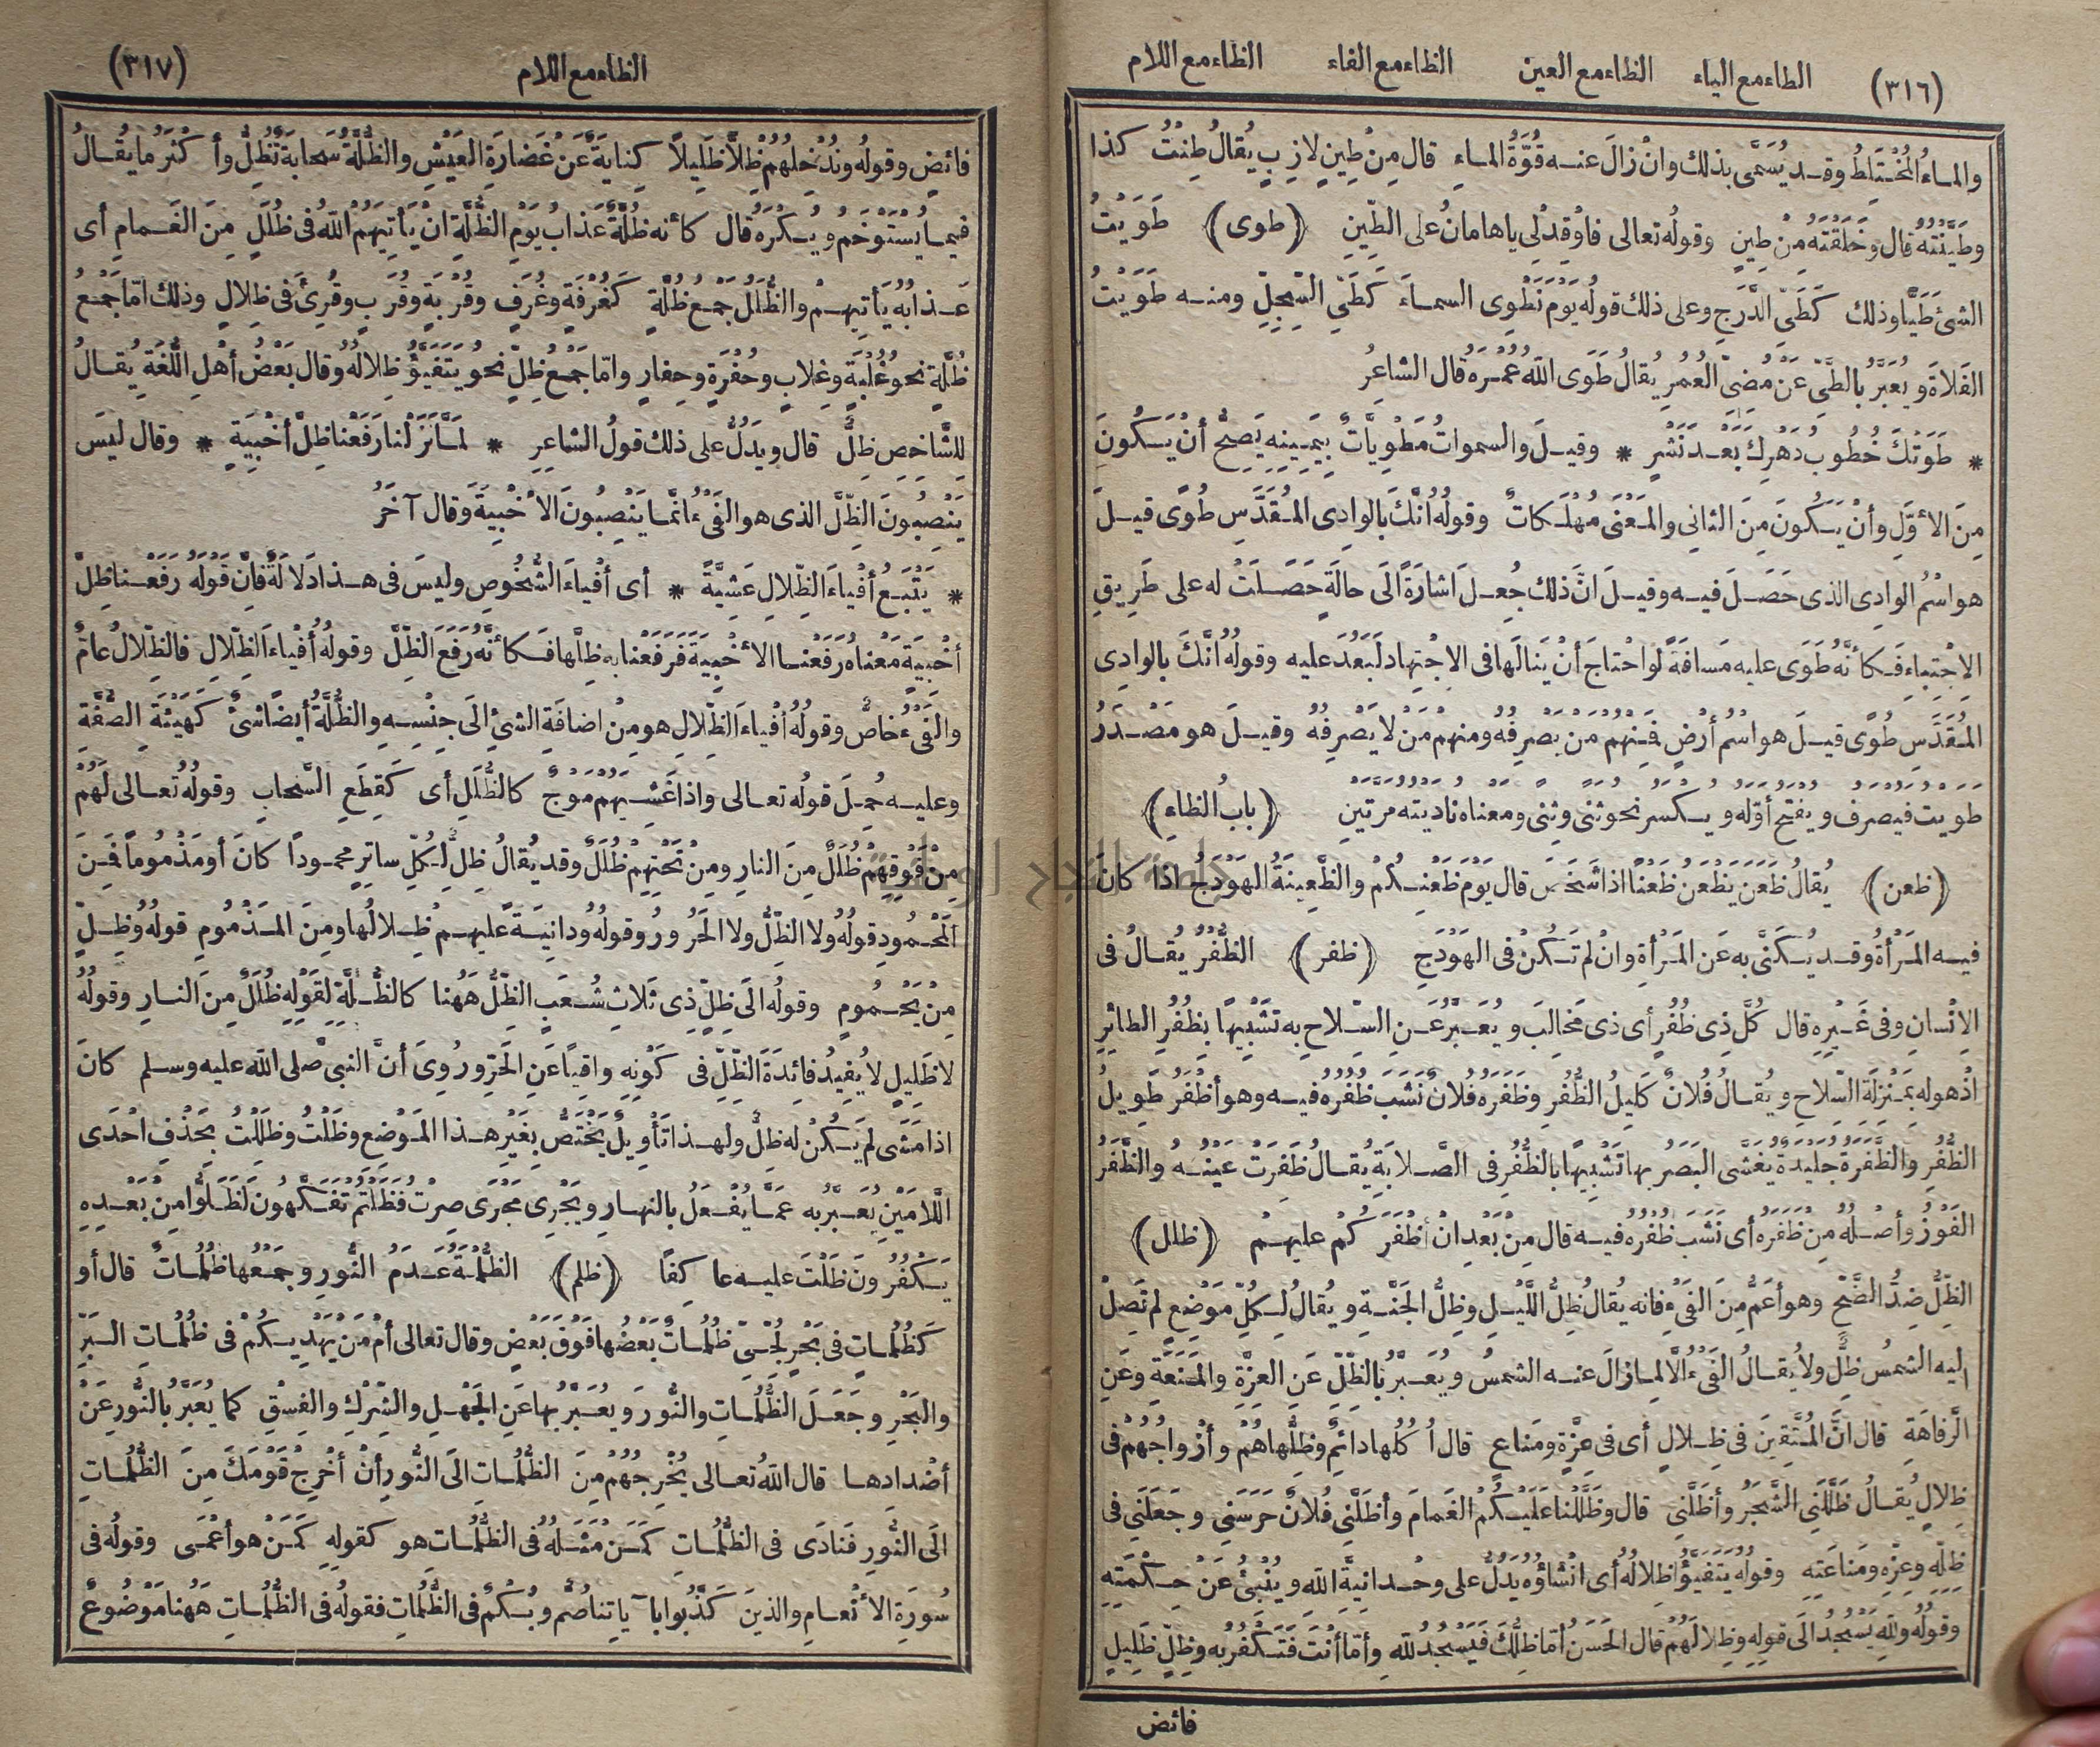 (٣١٦) الطاء مع الياء الظاء مع العين الظاء مع الفاء الظاء مع اللام
والماءُ المُخْتَلِطُ وقد يُسَمَّى بذلك وانْ زالَ عنه قُوَّةُ الماءِ قال مِنْ طِينٍ لازِبٍ يُقالُ طِنْتُ كذا
وطَيَّنْتُهُ قال وخَلَقْتَهُ مِنْ طِينٍ وقولُه تعالى فاَوْقِدْ لِى ياهامانُ على الطِّينِ (طوى) طَوَيْتُ
الشئَ طَيًّا وذلك كَطَىِّ الدَّرَجِ وعلى ذلك قولُه يَوْمَ نَطْوِى السماءَ كَطَىِّ السِّجِلِّ ومنه طَوَيْتُ
الفَلاةَ ويُعَبَّرُ بالطَّىِّ عَنْ مُضِىِّ العُمُرِ يُقالُ طَوَى اللهُ عُمُرَهُ قال الشاعِرُ
* طَوَتْكَ خُطُوبُ دَهْرِكَ بَعْدَ نَشْرٍ * وقيلَ والسمواتُ مَطْوِيَّاتٌ بِيَمِينِهِ يَصِحُّ أنْ يَكُونَ
مِنَ الأوَّلِ وأنْ يَكُونَ مِنَ الثانِى والمَعْنَى مُهْلَكاتٌ وقولُه انَّكَ بالوادِى المُقَدَّسِ طُوًى قيلَ
هو اسْمُ الوادِى الذى حَصَلَ فيه وقيلَ انَّ ذلك جُعِلَ اشارَةً الَى حالَةٍ حَصَلَتْ له على طَرِيقِ
الاجْتِباءِ فَكأنَّهُ طَوَى عليه مَسافَةً لو احْتاجَ أنْ يَنالَها فى الاِجْتِهادِ لَبَعُدَ عليه وقولُهُ انَّكَ بالوادِى
المُقَدَّسِ طُوًى قيلَ هو اسْمُ أرْضٍ فَمِنْهُمْ مَنْ يَصْرِفُهُ ومنهم مَنْ لا يَصْرِفُهُ وقيلَ هو مَصْدَرُ
طَوَيْتُ فَيُصْرَفُ ويُفْتَحُ أوَّلُه ويُكْسَرُ نحوُ ثَنًى وثِنًى ومعناه نادَيْتُه مَرَّتَيْنِ (بابُ الظاءِ)
(ظعن) يُقالُ ظَعَنَ يَظْعَنُ ظَعْنًا اذا شَخَصَ قال يَوْمَ ظَعْنِكُمْ والظَّعِينَةُ الهَوْدَجُ اذا كانَ
فيه المَرْأةُ وقد يُكَنَّى به عَنِ المَرْأةِ وانْ لم تَكُنْ فى الهَوْدَجِ (ظفر) الظُّفُرُ يُقالُ فى
الاِنْسانِ وفى غَيْرِهِ قال كُلَّ ذِى ظُفُرٍ أى ذى مَخالِبَ ويُعَبَّرُ عَنِ السِّلاحِ به تَشْبِيهًا بِظُفُرِ الطائِرِ
اذْ هو له بِمَنْزِلَةِ السِّلاحِ ويُقالُ فُلانٌ كَلِيلُ الظُّفُرِ وظَفَرَهُ فُلانٌ نَشَبَ ظُفُرَهُ فيه وهو أظْفَرُ طَوِيلُ
الظُّفُرِ والظَّفَرَةُ جُلَيْدَةٌ يُغَشَّى البَصَرُ بها تَشْبِيهًا بالظُّفُرِ فى الصَّلابَةِ يُقالُ ظَفِرَتْ عَيْنُهُ والظَّفَرُ
الفَوْزُ وأصْلُهُ مِنْ ظَفَرَهُ أى نَشَبَ ظُفُرَهُ فيه قال مِنْ بَعْدِ انْ أظْفَرَكُمْ عليهمْ (ظلل)
الظِّلُّ ضِدُّ الضِّحِّ وهو أعَمُّ مِنَ الفَىْءِ فانه يُقالُ ظِلُّ اللَّيْلِ وظِلُّ الجَنَّةِ ويُقالُ لِكُلِّ مَوْضِعٍ لم تَصِلْ
اليه الشمسُ ظِلٌّ ولا يُقالُ الفَىْءُ الَّا لِما زالَ عنه الشمسُ ويُعَبَّرُ بالظِّلِّ عَنِ العِزَّةِ والمَنَعَةِ وعَنِ
الرَّفاهَةِ قال انَّ المُتَّقِينَ فى ظِلالٍ أى فى عِزَّةٍ ومَناعٍ قال اُكُلُها دائِمٌ وظِلُّها هُمْ وأزْواجُهُمْ فى
ظِلالٍ يُقالُ ظَلَّلَنِى الشَّجَرُ وأظَلَّنِى قال وظَلَّلْنا عَلَيْكُمُ الغَمامَ وأظَلَّنِى فُلانٌ حَرَسَنِى وجَعَلَنِى فى
ظِلِّهِ وعِزِّهِ ومَناعَتِهِ وقولُه يَتَفَيَّؤُ ظِلالُهُ أى انْشاؤُه يَدُلُّ على وحْدانِيَّةِ اللهِ ويُنْبِئُ عَنْ حِكْمَتِهِ
وقولُهُ وللهِ يَسْجُدُ الَى قولِهِ وظِلالُهُمْ قال الحَسَنُ أمَّا ظِلُّكَ فَيَسْجُدُ للهِ وأمَّا أنْتَ فَتَكْفُرُ به وظِلٌّ ظَلِيلٍ
فائض
الظاء مع اللام (٣١٧)
فائضٍ وقولُه ونُدْخِلُهُمْ ظِلًّا ظَلِيلاً كِنايَةٌ عَنْ غَضارَةِ العَيْشِ والظُّلَّةُ سَحابَةٌ تُظِلُّ وأكْثَرُ ما يُقالُ
فيما يُسْتَوْخَمُ ويُكْرَهُ قال كأنه ظُلَّةٌ عَذابُ يَوْمِ الظُّلَّةِ انْ يَأتِيَهُمُ اللهُ فى ظُلَلٍ مِنَ الغَمامِ أى
عَذابُهُ يَأتِيهِمْ والظُّلَلُ جَمْعُ ظُلَّةٍ كَغُرْفَةٍ وغُرَفٍ وقُرْبَةٍ وقُرَبٍ وقُرِئَ فى ظِلالٍ وذلك امَّا جَمْعُ
ظُلَّةٍ نحوُ غُلْبَةٍ وغِلابٍ وحُفْرَةٍ وحِفارٍ وامَّا جَمْعُ ظِلٍّ نحوُ يَتَفَيَّؤُ ظِلالُهُ وقال بَعْضُ أهْلِ اللُّغَةِ يُقالُ
للشَّاخِصِ ظِلٌّ قال ويَدُلُّ على ذلك قولُ الشاعِرِ * لَمَّا نَزَلْنا رَفَعْنا ظِلَّ أخْبِيَةٍ * وقال ليسَ
يَنْصِبُونَ الظِّلَّ الذى هو الفَىْءُ انَّما يَنْصِبُونَ الأخْبِيَةَ وقال آخَرُ
* يَتْبَعُ أفْياءَ الظِّلالِ عَشِيَّةً * أى أفْياءَ الشُّخُوصِ وليسَ فى هذا دَلالَةٌ فانَّ قَوْلَهُ رَفَعْنا ظِلَّ
أخْبِيَةٍ مَعْناهُ رَفَعْنا الأخْبِيَةَ فَرَفَعْنا به ظِلَّها فَكأنَّهُ رَفَعَ الظِّلَّ وقولُهُ أفْياءَ الظِّلالِ فالظِّلالُ عامٌّ
والفَىْءُ خاصٌّ وقولُهُ أفْياءَ الظِّلالِ هو مِنْ اضافَةِ الشئِ الَى جِنْسِهِ والظُّلَّةُ أيضًا شئٌ كَهَيْئَةِ الصُّفَّةِ
وعليه حُمِلَ قولُه تعالى واذا غَشِيَهُمْ مَوْجٌ كالظُّلَلِ أى كَقِطَعِ السَّحابِ وقولُهُ تعالى لَهُمْ
مِنْ فَوْقِهِمْ ظُلَلٌ مِنَ النارِ ومِنْ تَحْتِهِمْ ظُلَلٌ وقد يُقالُ ظِلٌّ لِكُلِّ ساتِرٍ محمودًا كانَ أو مَذْمُومًا فَمِنَ
المَحْمُودِ قولُهُ ولا الظِّلُّ ولا الحَرُورُ وقولُهُ ودانِيَةً عليهمْ ظِلالُها ومِنَ المَذْمُومِ قولُهُ وظِلٍّ
مِنْ يَحْمُومٍ وقولُه الَى ظِلٍّ ذِى ثَلاثِ شُعَبٍ الظِّلُّ هٰهُنا كالظُّلَّةِ لِقَوْلِهِ ظُلَلٌ مِنَ النارِ وقولُهُ
لا ظَلِيلٍ لا يُفِيدُ فائِدَةَ الظِّلِّ فى كَوْنِهِ واقِيًا عَنِ الحَرِّ ورُوِىَ أنَّ النبىَّ صلى الله عليه وسلم كانَ
اذا مَشَى لم يَكُنْ له ظِلٌّ ولهذا تَأْوِيلٌ يَخْتَصُّ بِغَيْرِ هذا المَوْضِعِ وظَلْتُ وظَلِلْتُ بِحَذْفِ احْدَى
اللَّامَيْنِ يُعَبَّرُ به عَمَّا يُفْعَلُ بالنهارِ ويَجْرِى مَجْرَى صِرْتُ فَظَلْتُمْ تَفَكَّهُونَ لَظَلُّوا مِنْ بَعْدِهِ
يَكْفُرُونَ ظَلْتَ عليه عاكِفًا (ظلم) الظُّلْمَةُ عَدَمُ النُّورِ وجَمْعُها ظُلُماتٌ قال أو
كَظُلُماتٍ فى بَحْرٍ لُجِّىٍّ ظُلُماتٌ بَعْضُها فَوْقَ بَعْضٍ وقال تعالى أمْ مَنْ يَهْدِيكُمْ فى ظُلُماتِ البَرِّ
والبَحْرِ وجَعَلَ الظُّلُماتِ والنُّورَ ويُعَبَّرُ بها عَنِ الجَهْلِ والشِّرْكِ والفِسْقِ كما يُعَبَّرُ بالنُّورِ عَنْ
أضْدادِها قال اللهُ تعالى يُخْرِجُهُمْ مِنَ الظُّلُماتِ الَى النُّورِ أنْ أخْرِجْ قَوْمَكَ مِنَ الظُّلُماتِ
الَى النُّورِ فَنادَى فى الظُّلُماتِ كَمَنْ مَثَلُهُ فى الظُّلُماتِ هو كقولِهِ كَمَنْ هو أعْمَى وقولُه فى
سُورَةِ الأنْعامِ والذينَ كَذَّبُوا بآياتِنا صُمٌّ وبُكْمٌ فى الظُّلُماتِ فقولُه فى الظُّلُماتِ هٰهُنا مَوْضُوعٌ